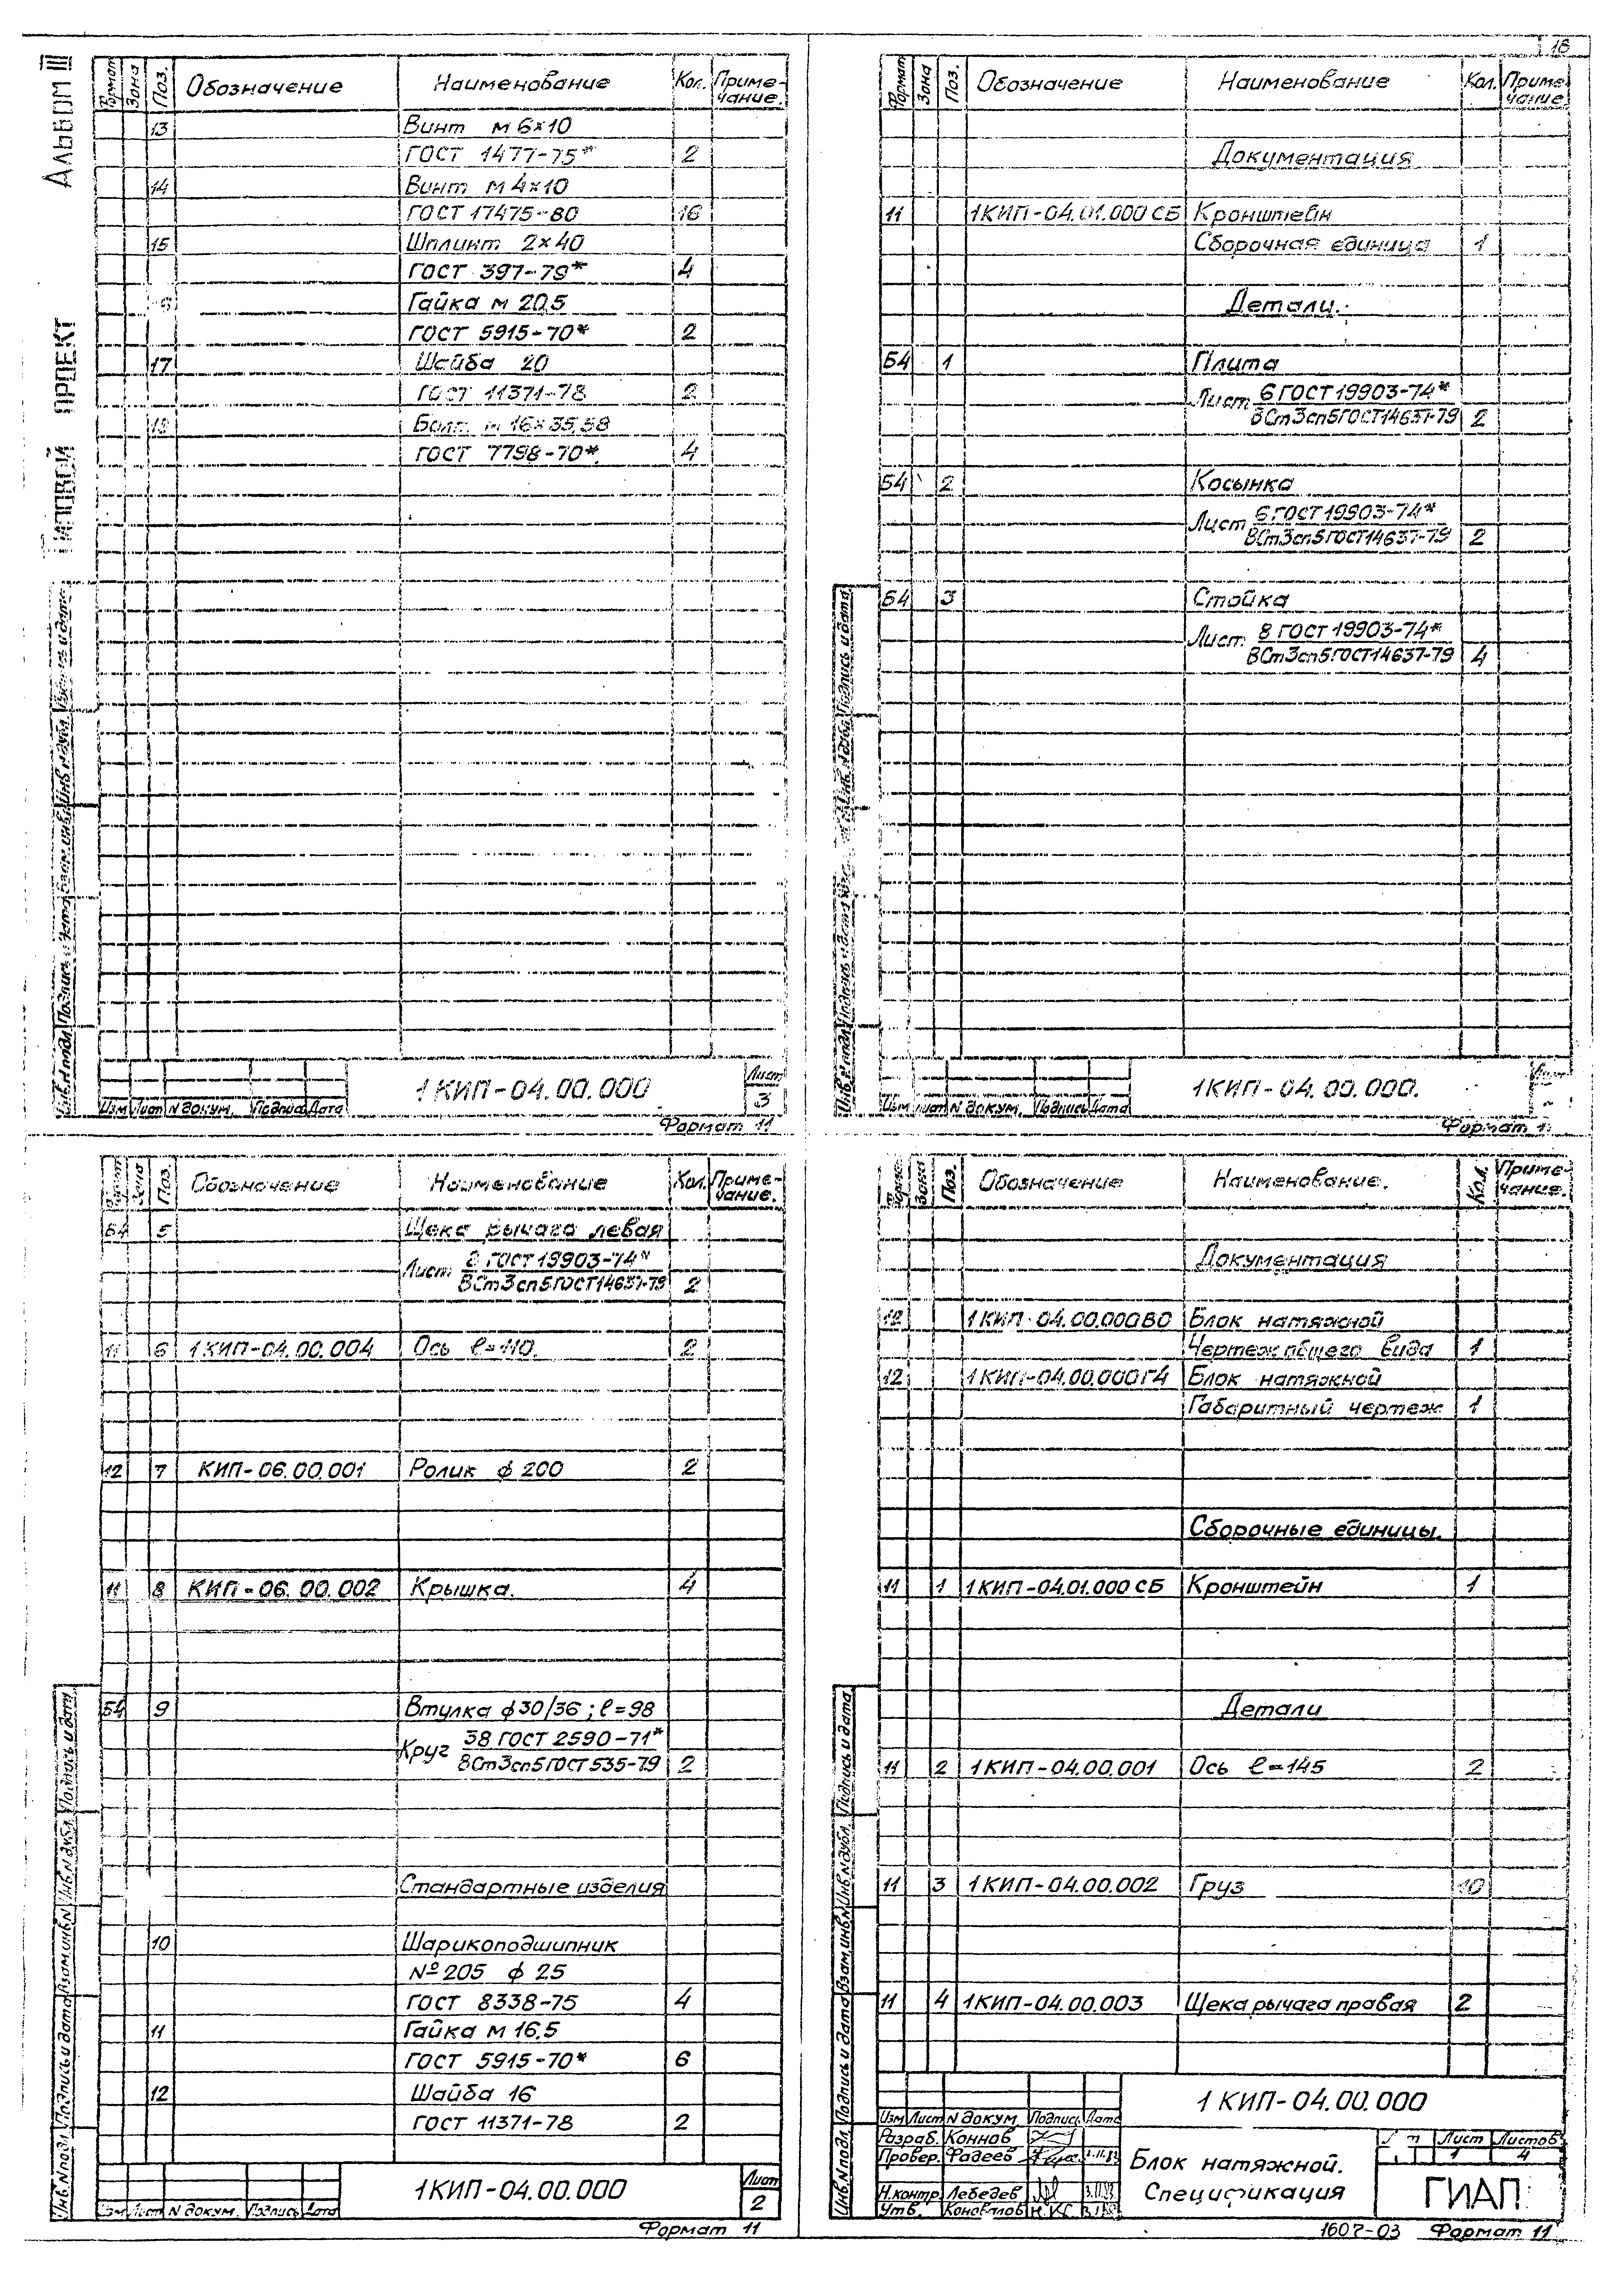 18
Альбом III
Типовой проект
Формат Зона Поз. Обозначение Наименование Кол. Приме-
чание.
13 Винт м 6×10
ГОСТ 1477-75* 2
14 Винт м 4×10
ГОСТ 17475-80 16
15 Шплинт 2×40
ГОСТ 397-79* 4
Гайка м 20,5
ГОСТ 5915-70* 2
17 Шайба 20
ГОСТ 11371-78 2
18 Болт м 16×35,58
ГОСТ 7798-70* 4
Изм Лист N докум. Подпись Дата
1КИП-04.00.000
Лист
3
Формат 11
Формат Зона Поз. Обозначение Наименование Кол. Приме-
чание.
Документация
11 1КИП-04.01.000 СБ Кронштейн
Сборочная единица 1
Детали.
Б4 1 Плита
Лист 6 ГОСТ 19903-74*
ВСт3сп5ГОСТ14637-79 2
Б4 2 Косынка
Лист 6 ГОСТ 19903-74*
ВСт3сп5ГОСТ14637-79 2
Б4 3 Стойка
Лист 8 ГОСТ 19903-74*
ВСт3сп5ГОСТ14637-79 4
Подпись и дата
Изм Лист N докум. Подпись Дата
1КИП-04.00.000.
Формат
Формат Зона Поз. Обозначение Наименование Кол. Приме-
чание.
Б4 5 Щека рычага левая
Лист 8 ГОСТ 19903-74*
ВСт3сп5ГОСТ14637-79 2
11 6 1КИП-04.00.004 Ось ℓ=110. 2
12 7 КИП-06.00.001 Ролик ф 200 2
11 8 КИП-06.00.002 Крышка. 4
Б4 9 Втулка ф30/36; ℓ=98
Круг 38 ГОСТ 2590-71*
ВСт3сп5ГОСТ535-79 2
Стандартные изделия
10 Шарикоподшипник
№205 ф 25
ГОСТ 8338-75 4
11 Гайка м 16,5
ГОСТ 5915-70* 6
12 Шайба 16
ГОСТ 11371-78 2
Инв.N подл. Подпись и дата Взам.инв.N Инв.N дубл. Подпись и дата
Изм Лист N докум. Подпись Дата
1КИП-04.00.000
Лист
2
Формат 11
Формат Зона Поз. Обозначение Наименование. Кол. Приме-
чание.
Документация
12 1КИП-04.00.000ВО Блок натяжной
Чертеж общего вида 1
12 1КИП-04.00.000ГЧ Блок натяжной
Габаритный чертеж 1
Сборочные единицы.
11 1 1КИП-04.01.000 СБ Кронштейн 1
Детали
11 2 1КИП-04.00.001 Ось ℓ=145 2
11 3 1КИП-04.00.002 Груз 10
11 4 1КИП-04.00.003 Щека рычага правая 2
Инв.N подл. Подпись и дата Взам.инв.N Инв.N дубл. Подпись и дата
1КИП-04.00.000
Изм Лист N докум. Подпись Дата
Разраб. Коннов
Провер. Фадеев
Н.контр. Лебедев
Утв. Коновалов
Блок натяжной.
Спецификация
Лист Листов
1 4
ГИАП
1607-03 Формат 11